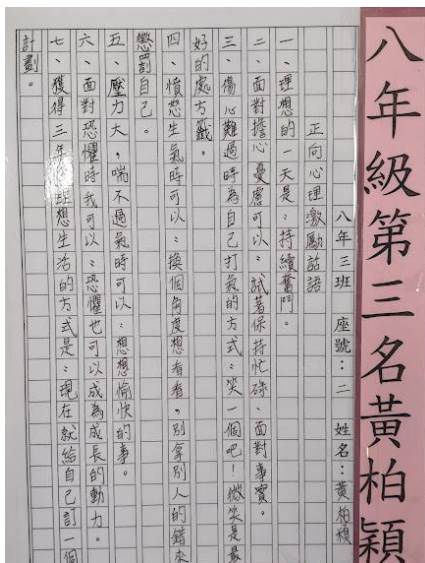 八年級第三名黃柏穎
八年三班 座號:二 姓名:黃柏穎
正向心理激勵話語
一、理想的一天是:持續奮鬥。
二、面對擔心憂慮可以:試著保持忙碌、面對事實。
三、傷心難過時為自己打氣的方式:笑一個吧!微笑是最
好的處方籤。
四、憤怒生氣時可以:換個角度想看看,別拿別人的錯來
懲罰自己。
五、壓力大,喘不過氣時可以:想想愉快的事。
六、面對恐懼時我可以:恐懼也可以成為成長的動力。
七、獲得三年後理想生活的方式是:現在就給自己訂一個
計劃。